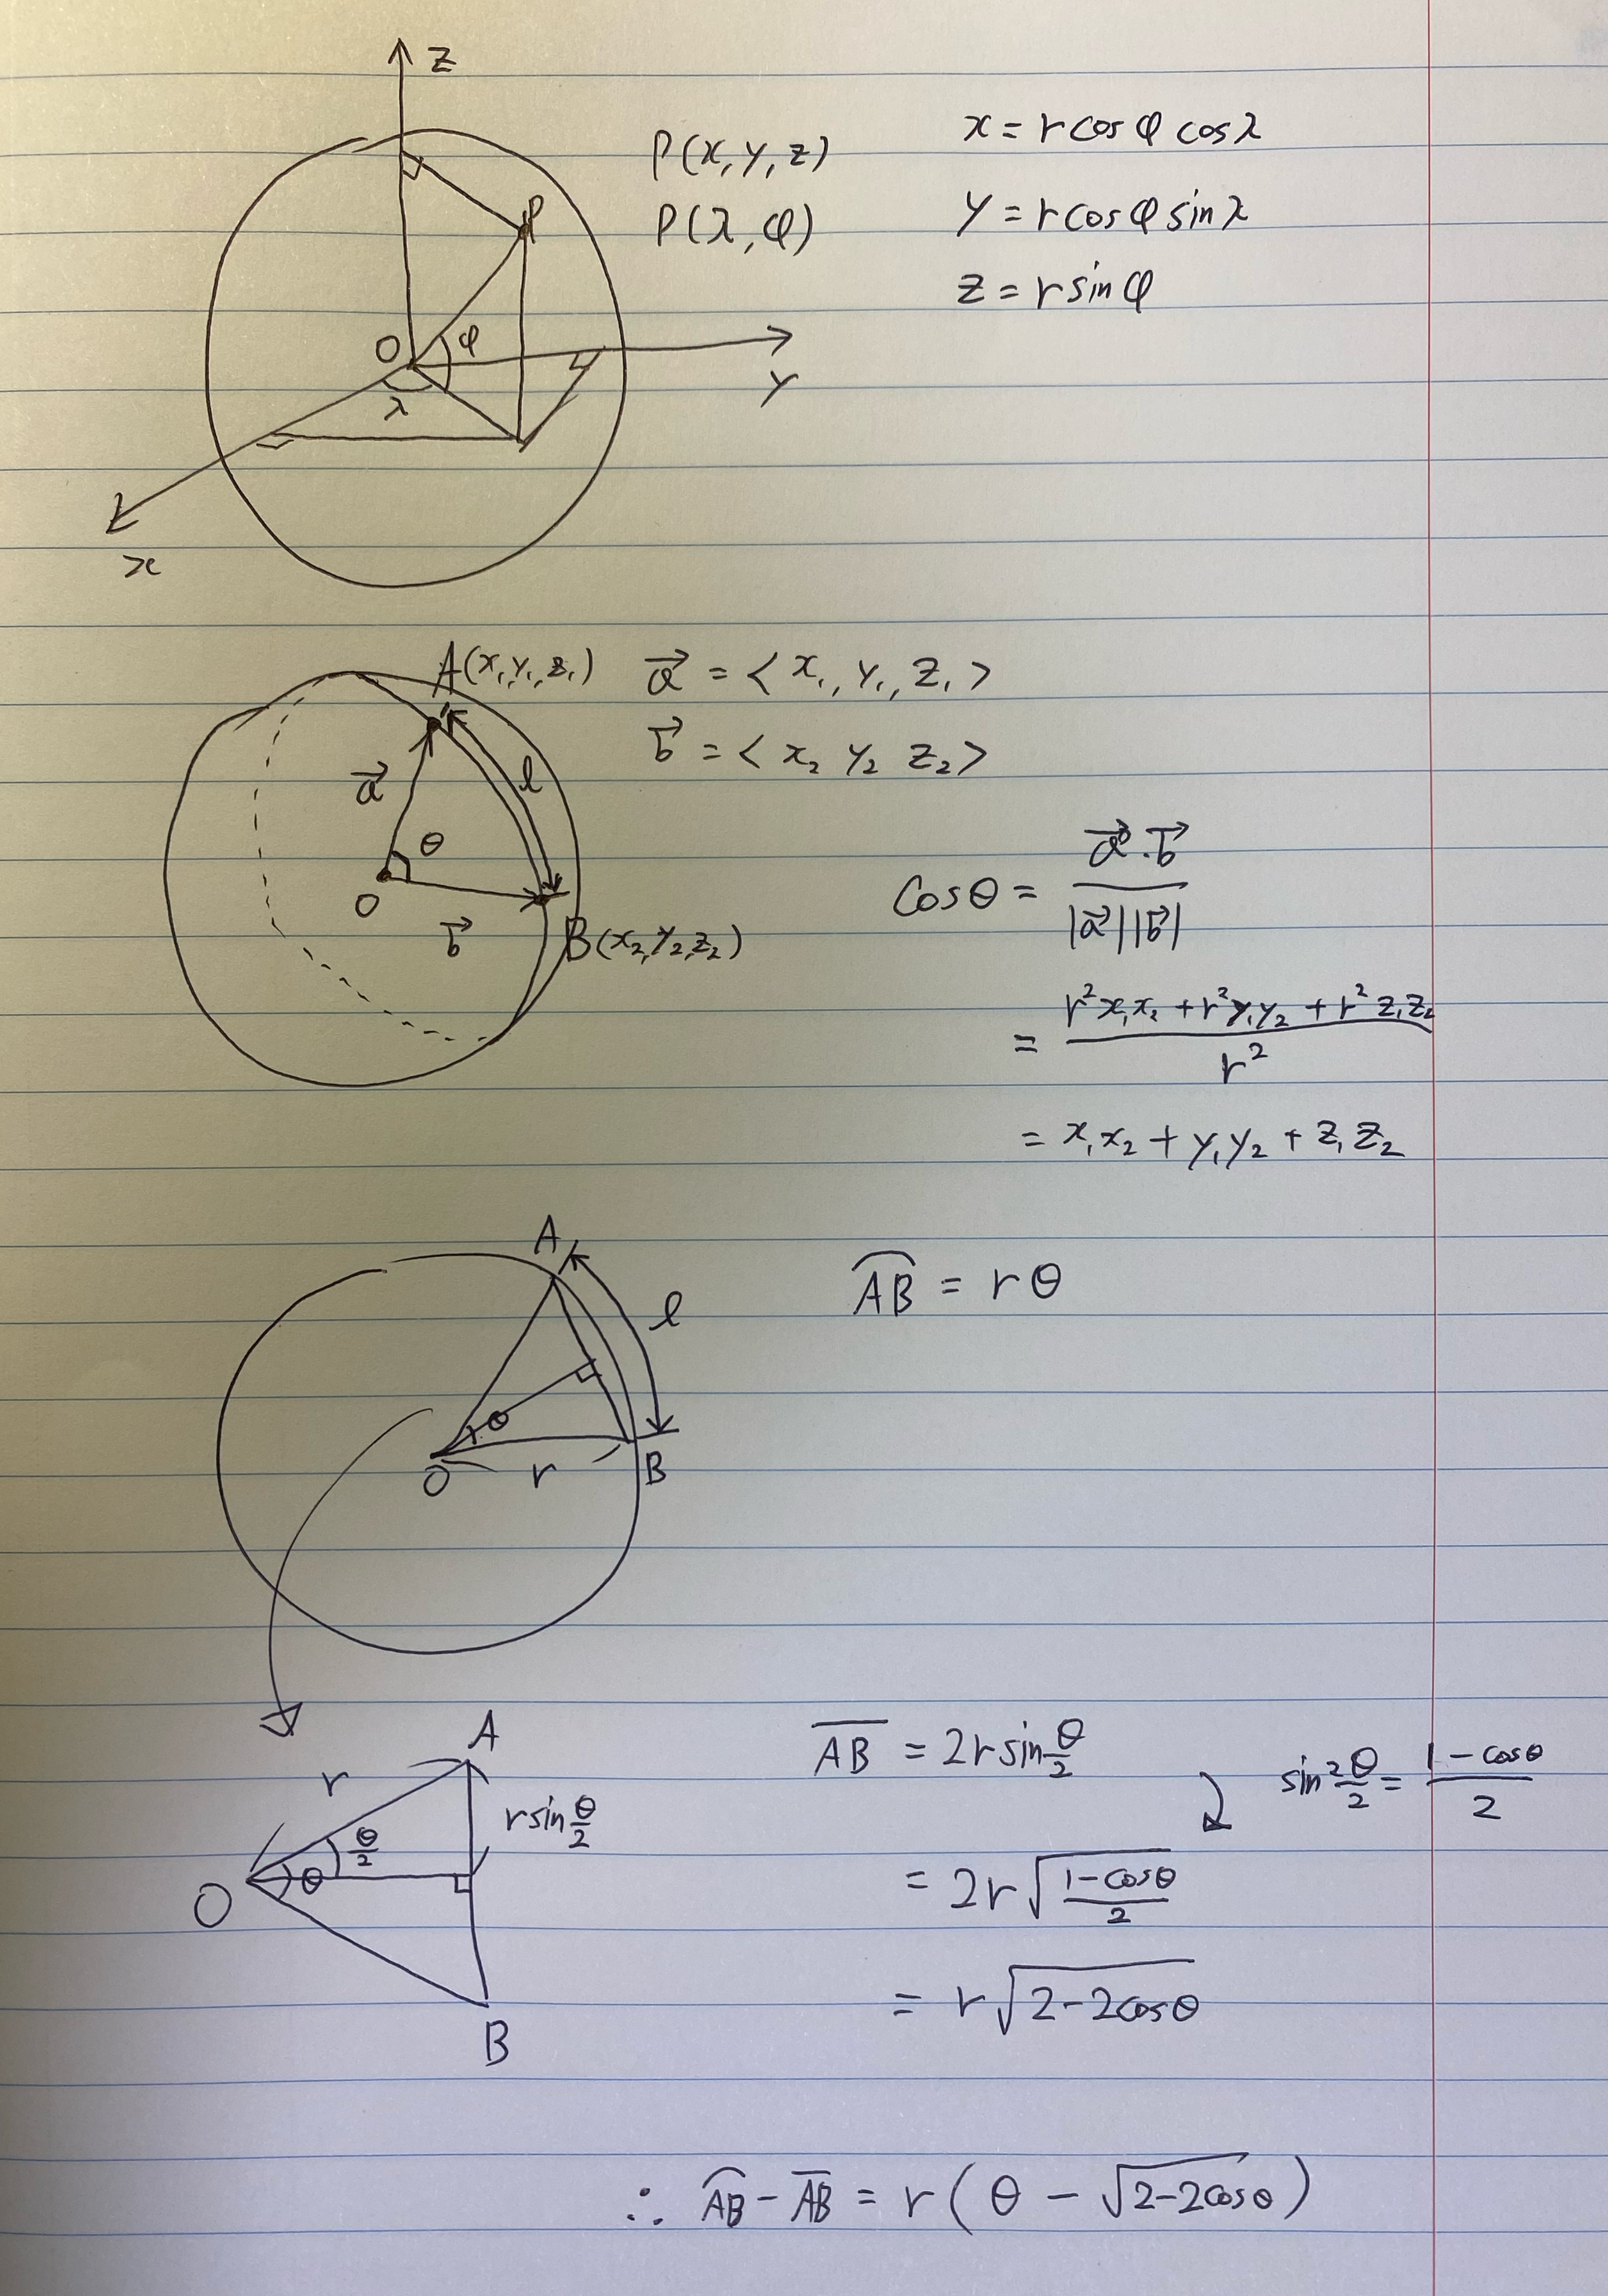 z
P(x, y, z)
x = r cos φ cos λ
P
P(λ, φ)
y = r cos φ sin λ
z = r sin φ
O
φ
λ
y
x
A(x₁, y₁, z₁)
a⃗ = < x₁, y₁, z₁ >
b⃗ = < x₂ y₂ z₂ >
a⃗
l
θ
O
b⃗
B(x₂, y₂, z₂)
cosθ = a⃗·b⃗ / |a⃗||b⃗|
= r²x₁x₂ + r²y₁y₂ + r²z₁z₂ / r²
= x₁x₂ + y₁y₂ + z₁z₂
A
l
⌒AB = rθ
θ
O
r
B
A
r
r sin θ/2
θ/2
θ
O
B
A̅B̅ = 2r sin θ/2
sin² θ/2 = 1 − cosθ / 2
= 2r √(1−cosθ / 2)
= r √(2−2cosθ)
∴ ⌒AB − A̅B̅ = r ( θ − √(2−2cosθ) )